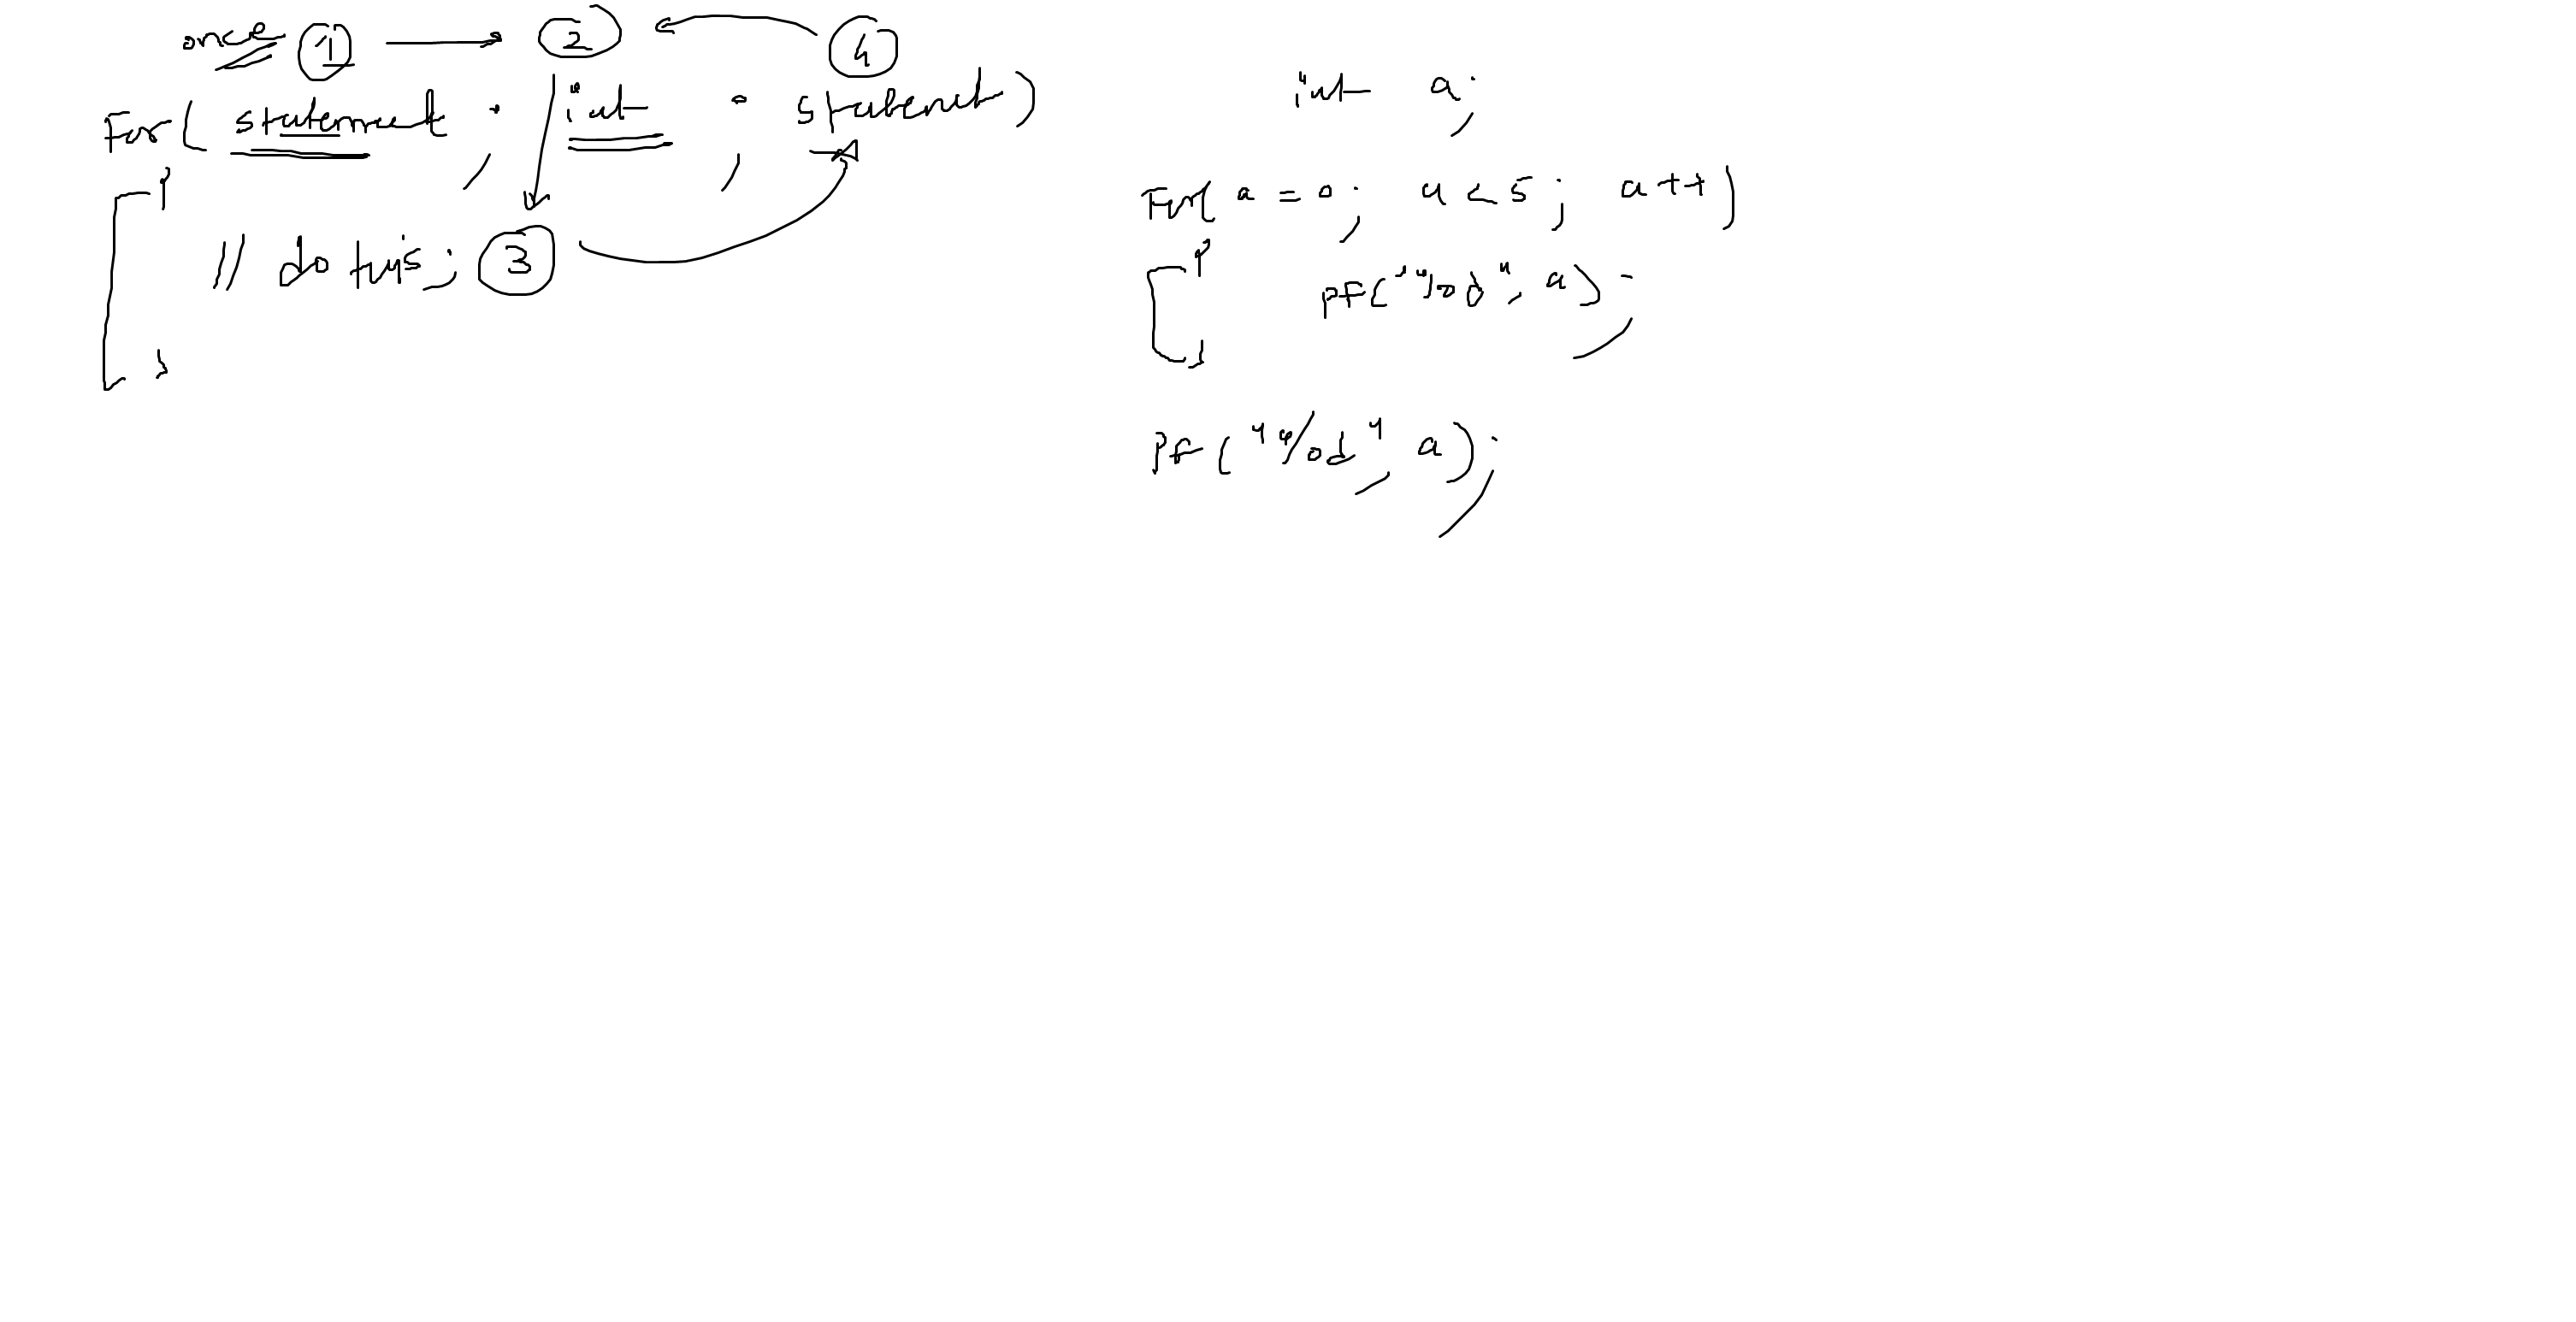 once 1 2 4
For( statement ; int ; statement )
{
// do this; 3
}
int a;
For( a = 0; a < 5; a++)
{
PF("%d", a);
}
PF("%d", a);